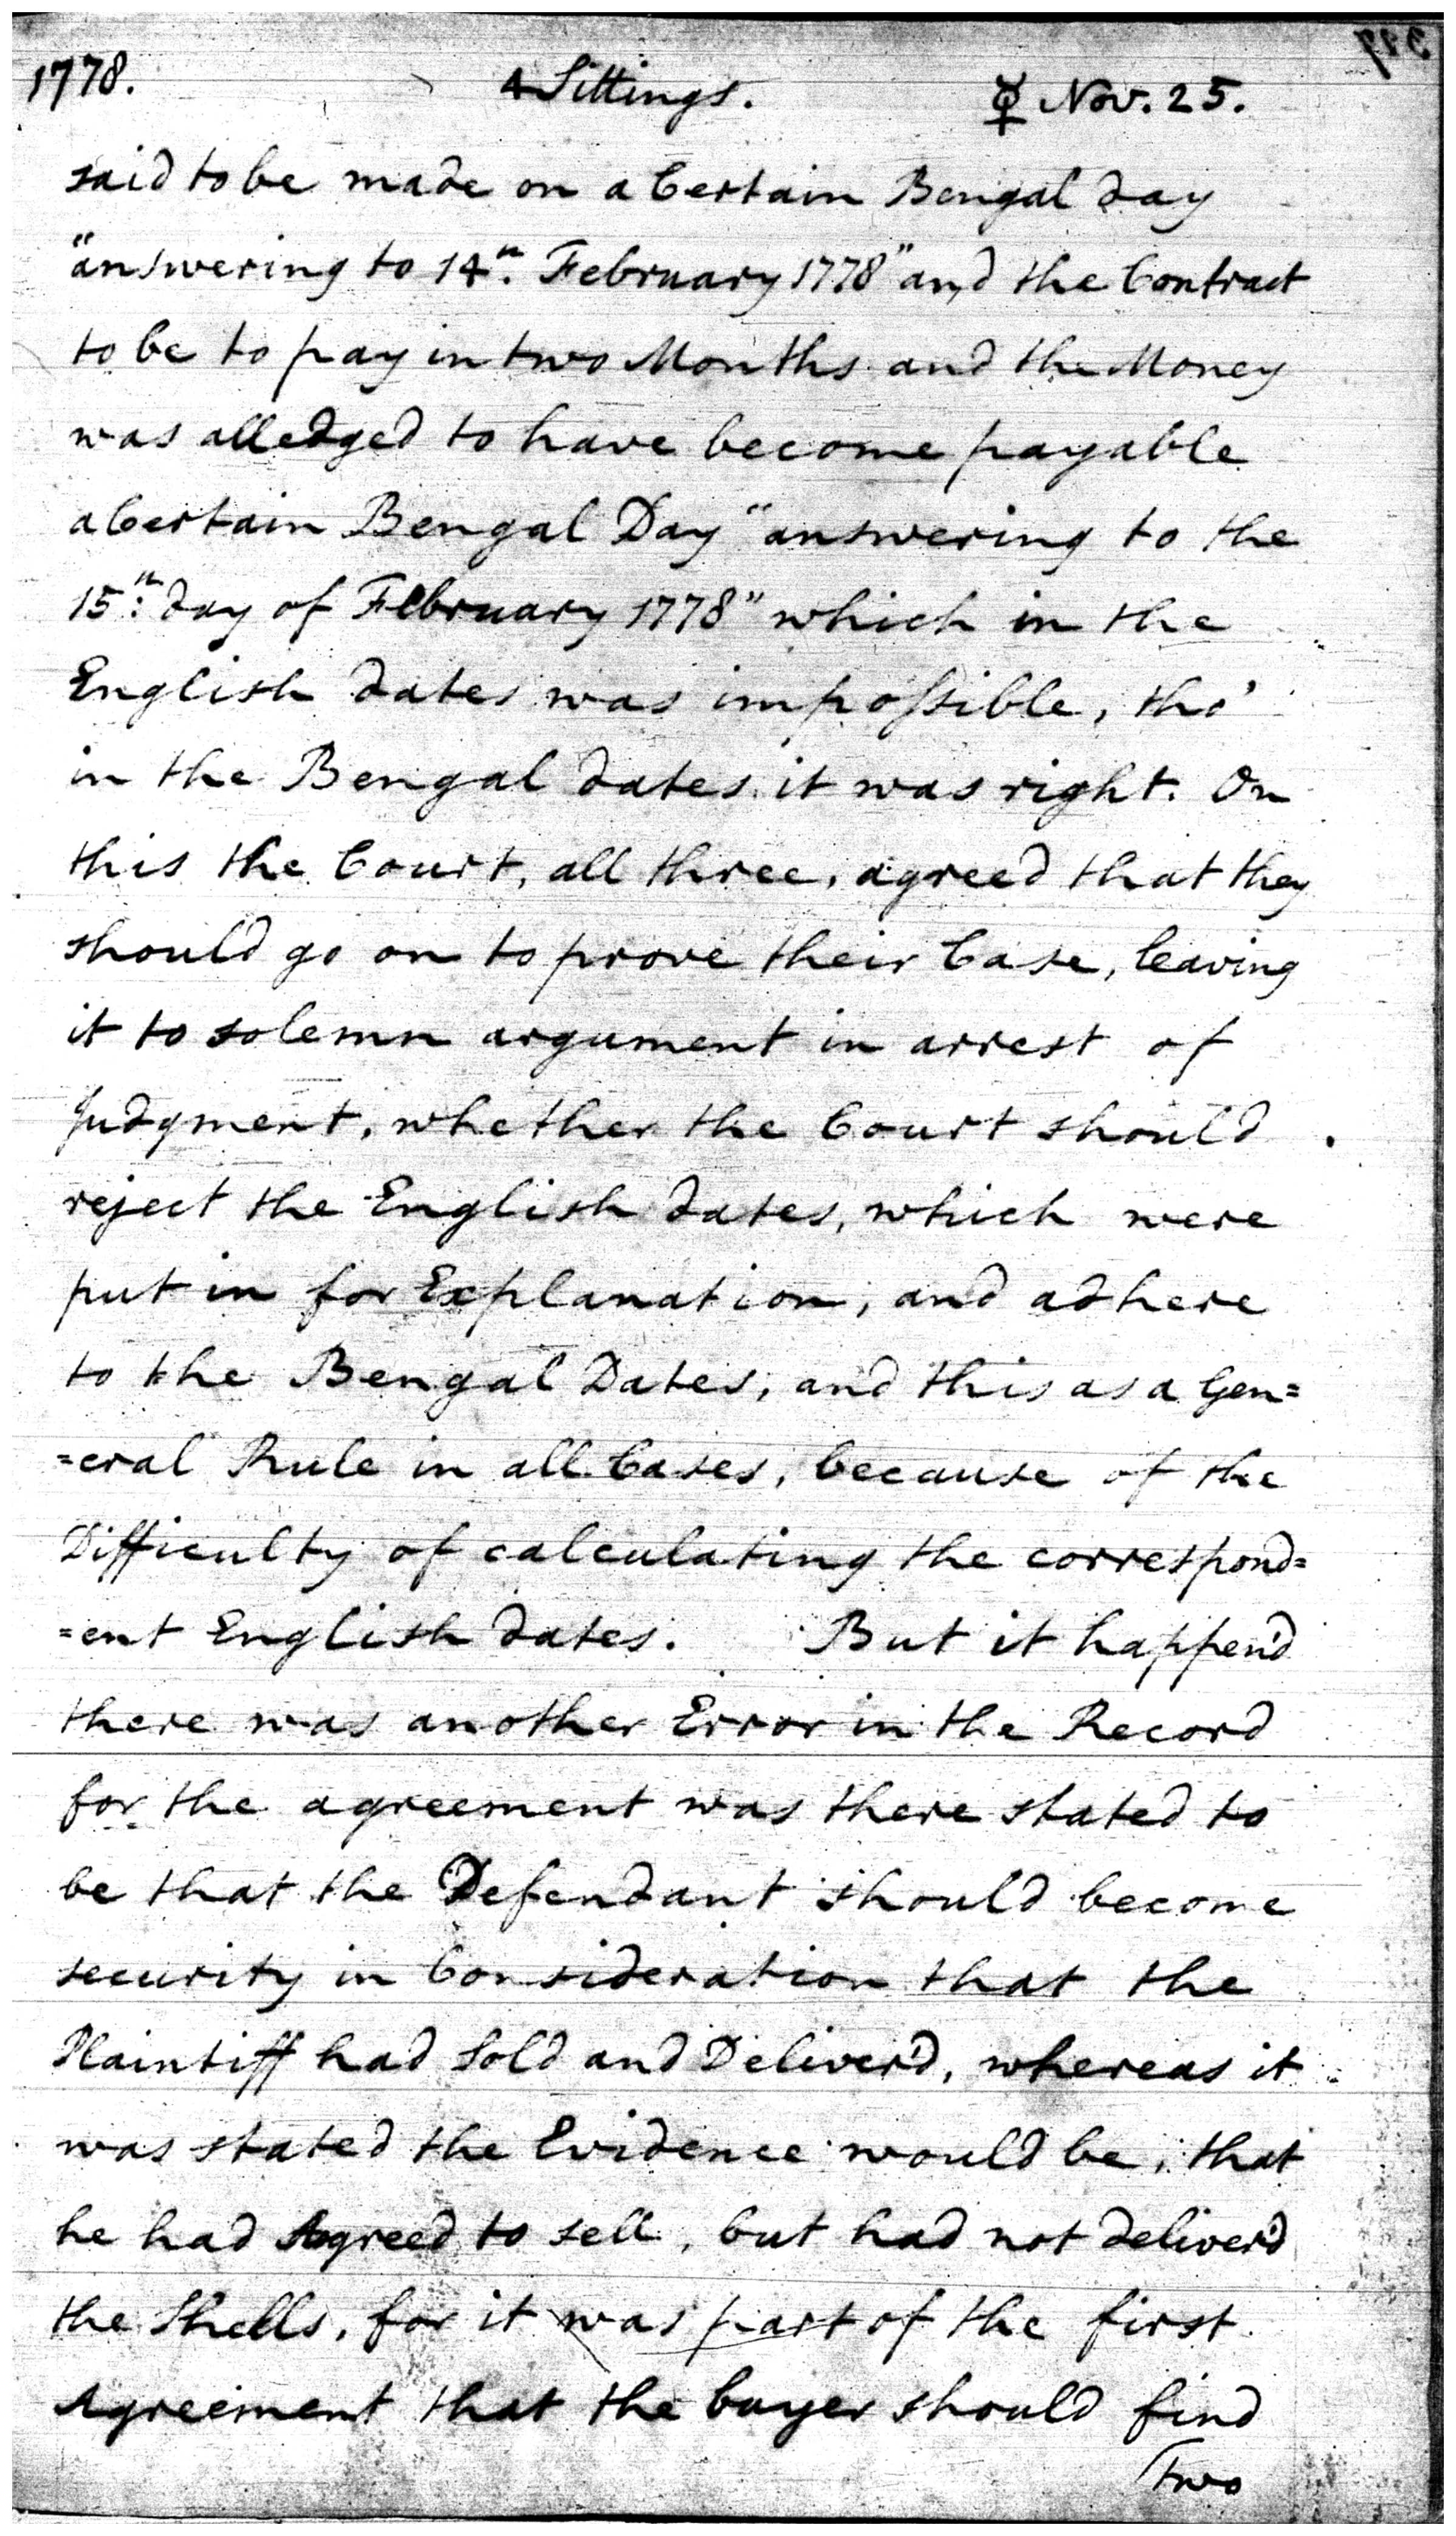 1778. 4 Sittings. ☿ Nov. 25.
said to be made on a Certain Bengal day
"answering to 14th. February 1778" and the Contract
to be to pay in two Months and the Money
was alledged to have become payable
a Certain Bengal Day "answering to the
15th: day of February 1778" which in the
English dates was impossible, tho'
in the Bengal dates it was right. On
this the Court, all three, agreed that they
should go on to prove their Case, leaving
it to solemn argument in arrest of
Judgment, whether the Court should
reject the English dates, which were
put in for Explanation, and adhere
to the Bengal Dates, and this as a Gen=
=eral Rule in all Cases, because of the
Difficulty of calculating the correspond=
=ent English dates. But it happen'd
there was another Error in the Record
for the agreement was there stated to
be that the Defendant should become
security in Consideration that the
Plaintiff had Sold and Deliver'd, whereas it
was stated the Evidence would be, that
he had Agreed to sell, but had not deliver'd
the Shells, for it was part of the first
Agreement that the buyer should find
two